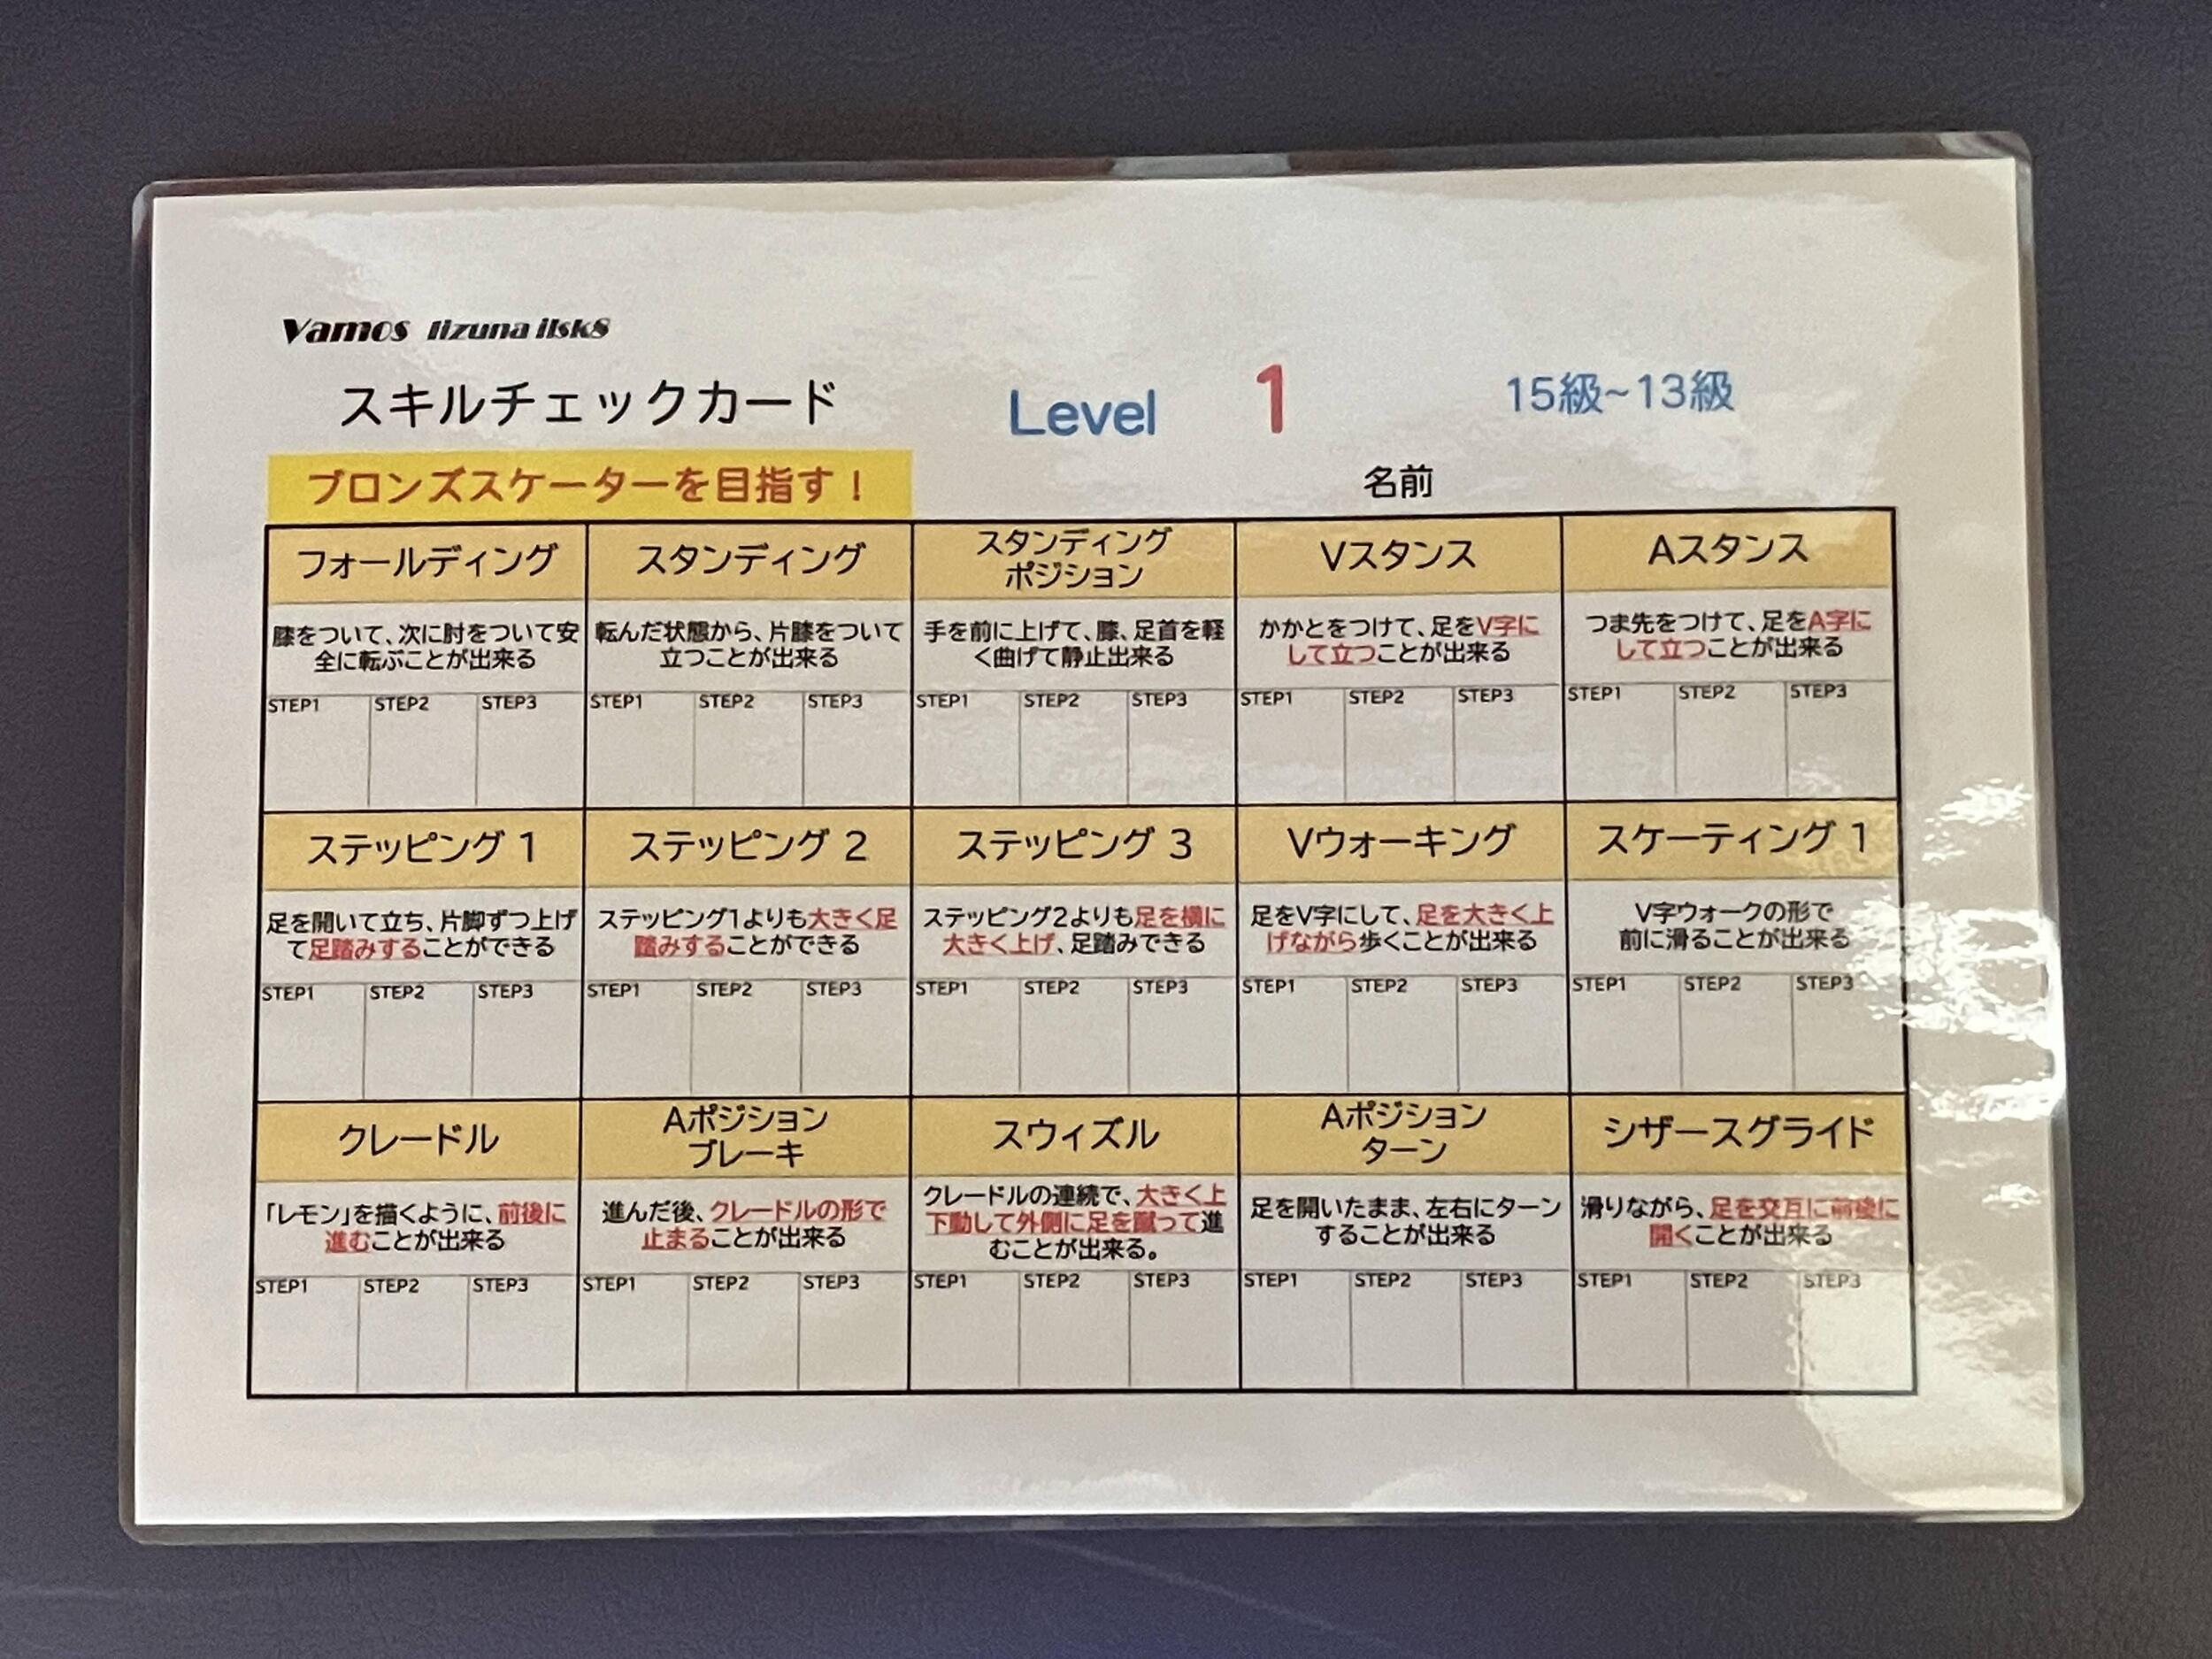 Vamos Iizuna ilsk8
スキルチェックカード
Level 1
15級~13級
ブロンズスケーターを目指す！
名前
フォールディング
膝をついて、次に肘をついて安
全に転ぶことが出来る
STEP1 STEP2 STEP3
スタンディング
転んだ状態から、片膝をついて
立つことが出来る
STEP1 STEP2 STEP3
スタンディング
ポジション
手を前に上げて、膝、足首を軽
く曲げて静止出来る
STEP1 STEP2 STEP3
Vスタンス
かかとをつけて、足をV字に
して立つことが出来る
STEP1 STEP2 STEP3
Aスタンス
つま先をつけて、足をA字に
して立つことが出来る
STEP1 STEP2 STEP3
ステッピング 1
足を開いて立ち、片脚ずつ上げ
て足踏みすることができる
STEP1 STEP2 STEP3
ステッピング 2
ステッピング1よりも大きく足
踏みすることができる
STEP1 STEP2 STEP3
ステッピング 3
ステッピング2よりも足を横に
大きく上げ、足踏みできる
STEP1 STEP2 STEP3
Vウォーキング
足をV字にして、足を大きく上
げながら歩くことが出来る
STEP1 STEP2 STEP3
スケーティング 1
V字ウォークの形で
前に滑ることが出来る
STEP1 STEP2 STEP3
クレードル
「レモン」を描くように、前後に
進むことが出来る
STEP1 STEP2 STEP3
Aポジション
ブレーキ
進んだ後、クレードルの形で
止まることが出来る
STEP1 STEP2 STEP3
スウィズル
クレードルの連続で、大きく上
下動して外側に足を蹴って進
むことが出来る。
STEP1 STEP2 STEP3
Aポジション
ターン
足を開いたまま、左右にターン
することが出来る
STEP1 STEP2 STEP3
シザースグライド
滑りながら、足を交互に前後に
開くことが出来る
STEP1 STEP2 STEP3